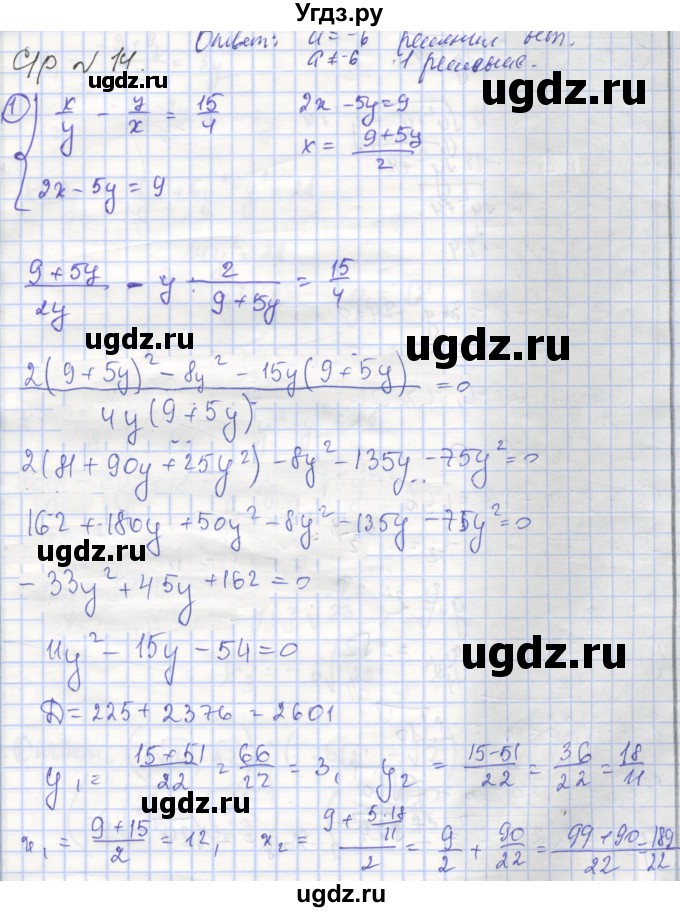 Угдз.ру
Ответ: a = -6 решений нет.
a ≠ -6 1 решение.
Ср № 14.
1) { x/y - y/x = 15/4 2x - 5y = 9
x = (9+5y)/2
2x - 5y = 9
(9+5y)/2y - y · 2/(9+5y) = 15/4
ugdz.ru ugdz.ru
(2(9+5y)² - 8y² - 15y(9+5y))/(4y(9+5y)) = 0
ugdz.ru
2(81 + 90y + 25y²) - 8y² - 135y - 75y² = 0
162 + 180y + 50y² - 8y² - 135y - 75y² = 0
ugdz.ru ugdz.ru
-33y² + 45y + 162 = 0
11y² - 15y - 54 = 0
ugdz.ru
D = 225 + 2376 = 2601
y₁ = (15+51)/22 = 66/22 = 3, y₂ = (15-51)/22 = 36/22 = 18/11
ugdz.ru ugdz.ru
x₁ = (9+15)/2 = 12, x₂ = (9 + 5·18/11)/2 = 9/2 + 90/22 = (99+90)/22 = 189/22
ugdz.ru